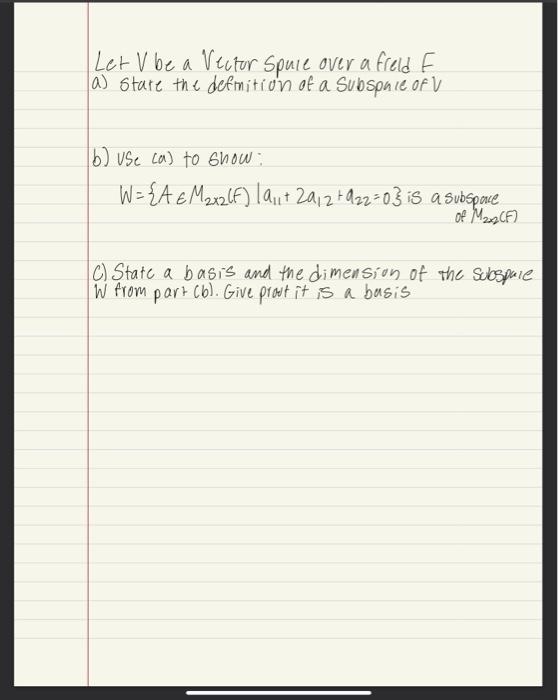 Let V be a Vector Space over a field F
a) State the definition of a Subspace of V
b) Use (a) to show:
W={A ∈ M₂ₓ₂(F) | a₁₁ + 2a₁₂ + a₂₂ = 0} is a subspace
of M₂ₓ₂(F)
C) State a basis and the dimension of the subspace
W from part (b). Give proof it is a basis